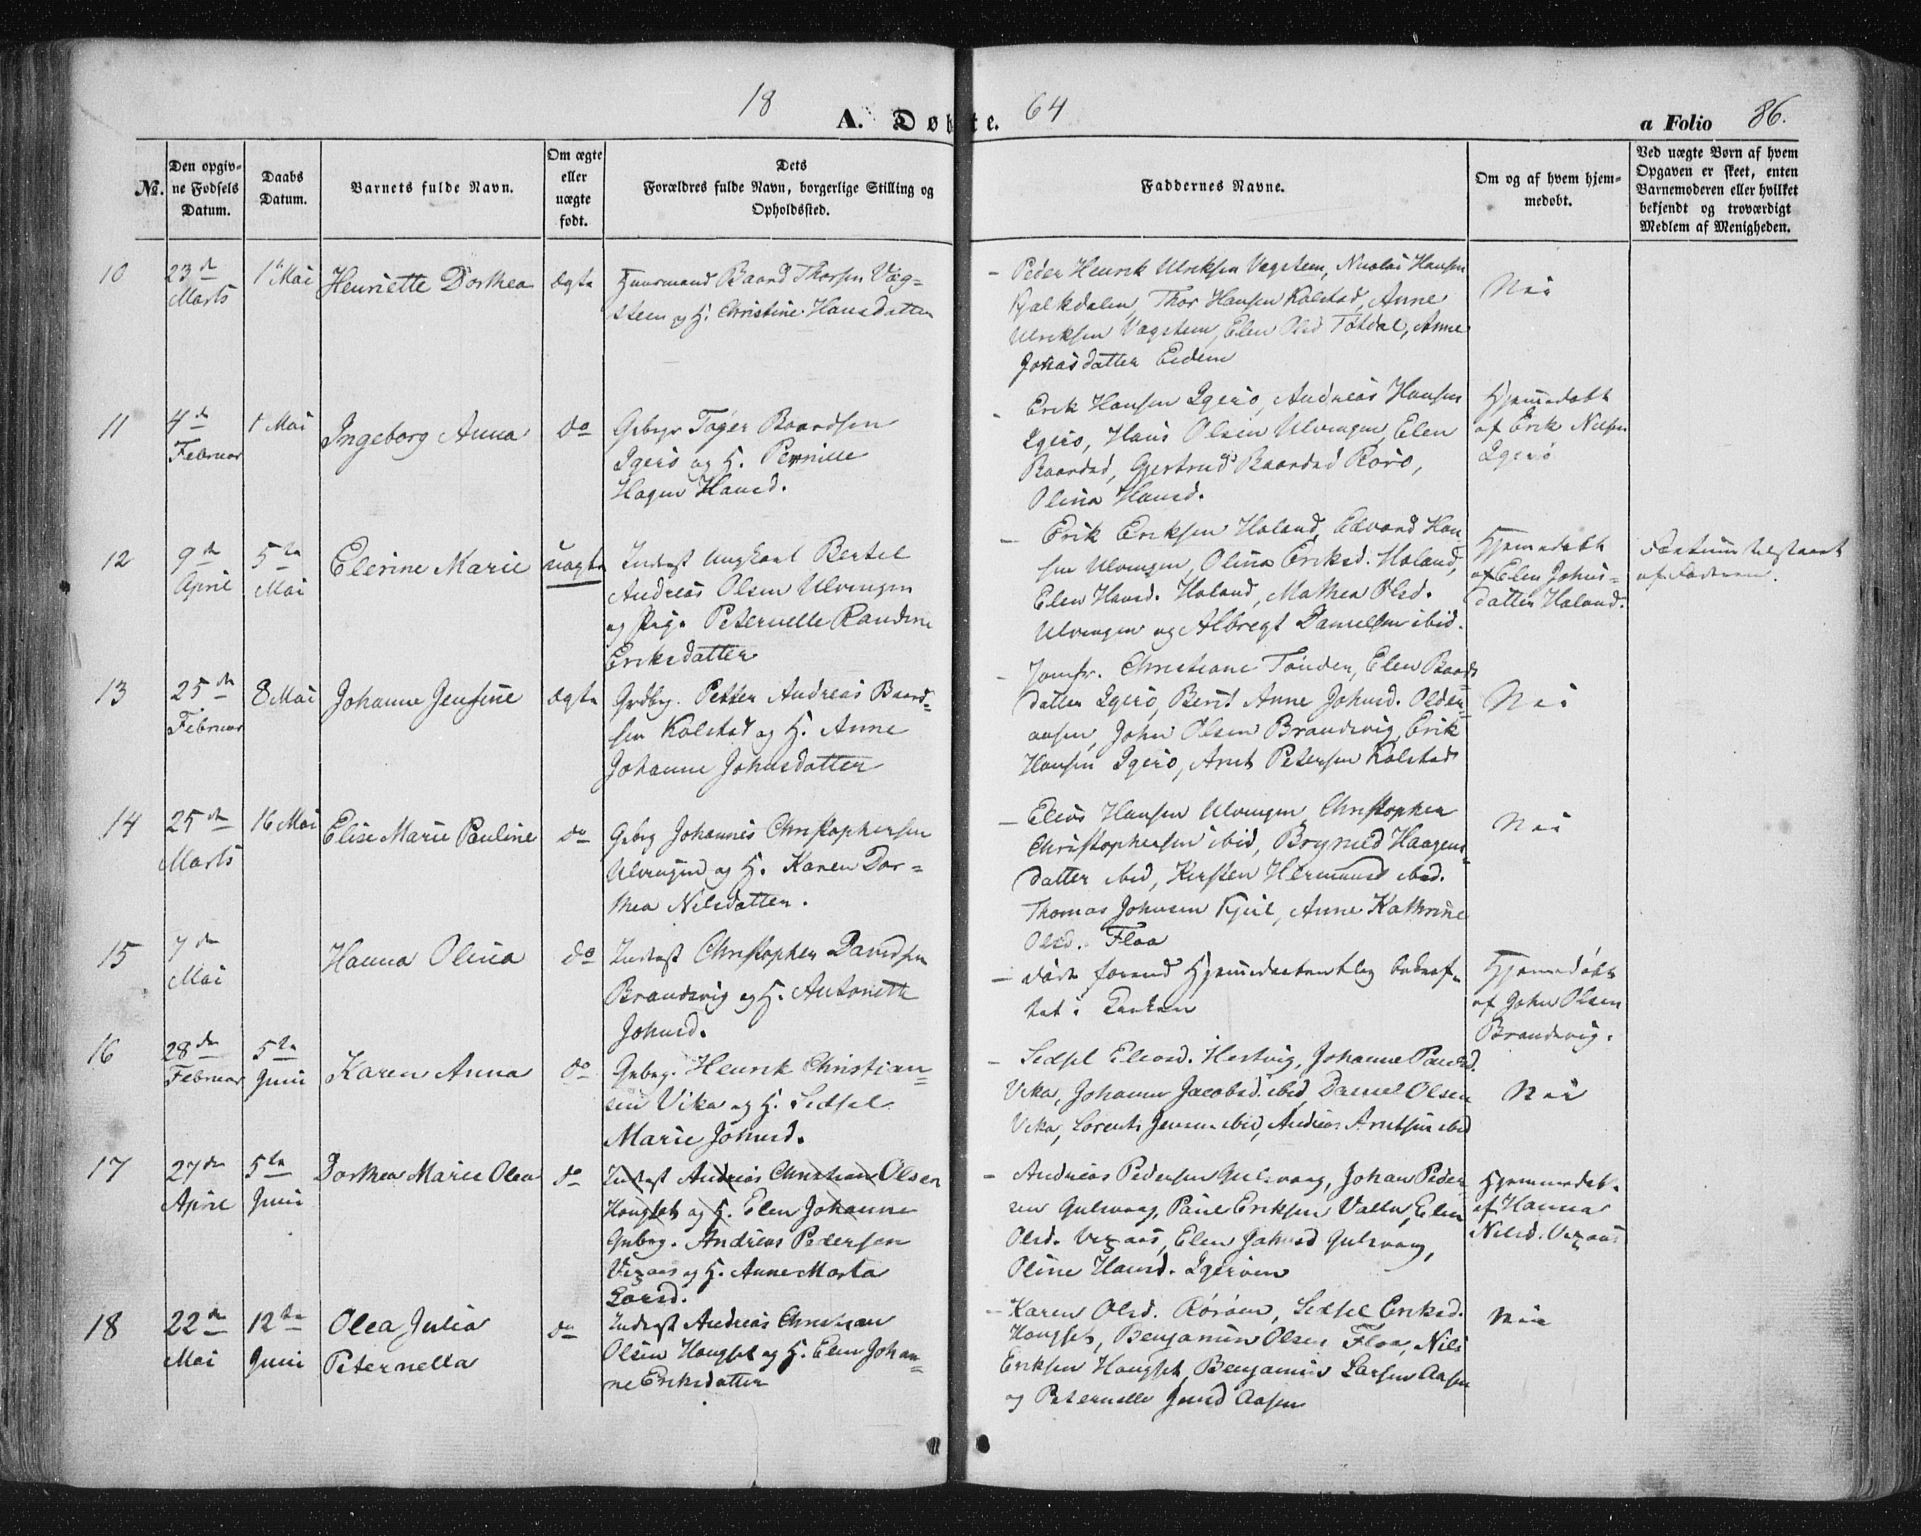 18 64
A. Døbte.
a Folio 86.
No.
Den opgivne Fødsels Datum.
Daabs Datum.
Barnets fulde Navn.
Om ægte eller uægte født.
Dets Forældres fulde Navn, borgerlige Stilling og Opholdssted.
Faddernes Navne.
Om og af hvem hjemmedøbt.
Ved uægte Børn af hvem Opgaven er skeet, enten Barnemoderen eller hvilket bekjendt og troværdigt Medlem af Menigheden.
10
23de Marts
1 Mai
Henriette Dorthea
ægte
Huusmand Baard Thorsen Væg-
stein og H. Christine Hansdatter
- Peder Henrik Ulriksen Vægstein, Nicolai Hansen
Thor Hansen Kolstad, Anne
Ulriksen Vægstein, Elen Olsd Tøtdal, Anne
Jonasdatter Eidem
Nei
11
4de Februar
1 Mai
Ingeborg Anna
do
Gbrgr Tøger Baardsen
Igerö og H. Pernille
Hagne Hansd.
- Erik Hansen Igerö, Andreas Hansen
Igerö, Hans Olsen Ulvingen, Elen
Baardsd, Gjertrud Baardsd Rörö,
Olina Hansd.
Hjemmedøbt
af Erik Nilsen
Igerö
12
9de April
5te Mai
Elerine Marie
uægte
Inderst Ungkarl Bertel
Andreas Olsen Ulvingen
og Pige Peternelle Randine
Eriksdatter
- Erik Eriksen Holand, Edvard Han-
sen Ulvingen, Olina Eriksd. Holand,
Elen Hansd. Holand, Mathea Olsd.
Ulvingen og Albregt Danielsen ibid.
Hjemmedøbt
af Elen Johns-
datter Holand.
Factum tilstaaet
af Faderen.
13
25de Februar
8 Mai
Johanne Jensine
ægte
Grdbrg. Petter Andreas Baard-
sen Kolstad og H. Anne
Johanne Johnsdatter
- Jomfr. Christiane Tönder, Elen Baards-
datter Igerö, Berit Anne Johnsd. Older-
aasen, John Olsen Brandsvig, Erik
Hansen Igerö, Arnt Petersen Kolstad
Nei
14
25de Marts
16 Mai
Elise Marie Pauline
do
Gbrg Johannes Christophersen
Ulvingen og H. Karen Dor-
thea Nilsdatter.
- Elias Hansen Ulvingen, Christopher
Christophersen ibid, Brynild Haagens-
datter ibid, Kirsten Hermansd ibid.
Thomas Johnsen Kjül, Anne Kathrine
Olsd. Floa
Nei
15
7de Mai
Hanna Olina
do
Inderst Christopher Davidsen
Brandsvig og H. Antonette
Johnsd.
- død forend Hjemmedaaben blev bekræf-
tet i Kirken
Hjemmedøbt
af John Olsen
Brandsvig.
16
28de Februar
5te Juni
Karen Anna
do
Gbrg. Henrik Christian-
sen Vika og H. Sedsel
Marie Johnsd.
- Sedsel Eliasd. Hestvig, Johanne Paulsd.
Vika, Johanne Jacobsd. ibid, Daniel Olsen
Vika, Lorents Jensen ibid, Andreas Arntsen ibid
Nei
17
27de April
5te Juni
Dorthea Marie Olea
do
Inderst Andreas Christian Olsen
Hougset og H. Elen Johanne
Gbrg. Andreas Pedersen
Vegaas og H. Anne Marta
Larsd.
- Andreas Pedersen Gulsvaag, Johan Peder-
sen Gulsvaag, Paul Eriksen Valla, Elen
Olsd. Vegaas, Elen Johnsd Gulsvaag,
Oline Hansd. Igeröen
Hjemmedøbt
af Hanna
Nilsd. Vegaas
18
22de Mai
12te Juni
Olea Julia
Peternella
do
Inderst Andreas Christian
Olsen Hougset og H. Elen Johan-
ne Eriksdatter
- Karen Olsd. Röröen, Sedsel Eriksd.
Hougset, Benjamin Olsen Floa, Nils
Eriksen Hougset, Benjamin Larsen Aasen
og Peternelle Jensd Aasen
Nei